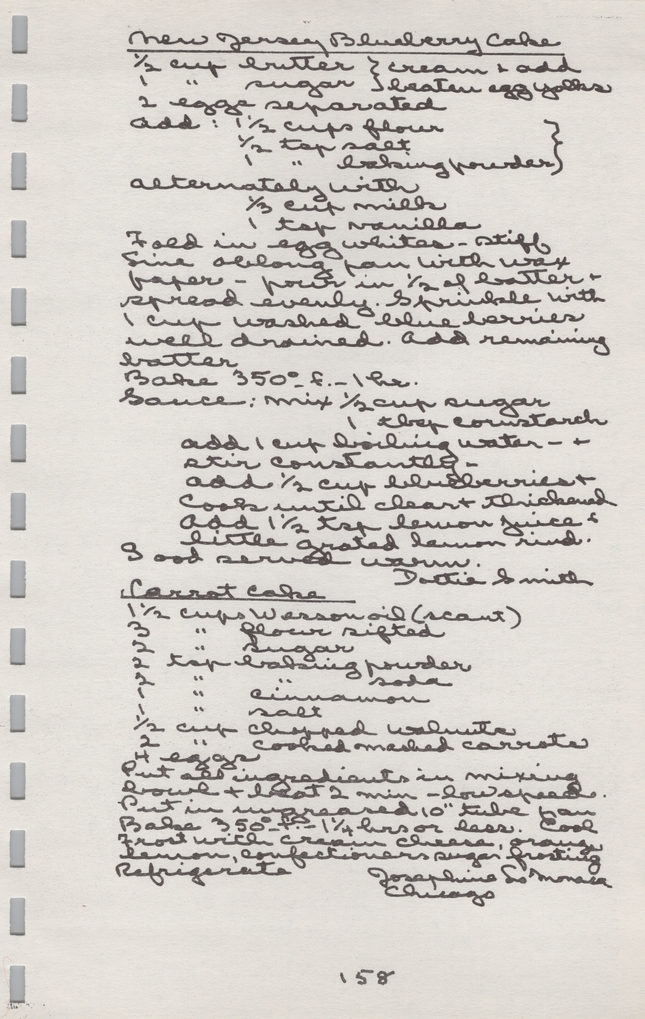 New Jersey Blueberry Cake
1/2 cup butter } cream + add
1 " sugar } beaten egg yolks
2 eggs separated
add : 1 1/2 cups flour }
1/2 tsp salt
1 " baking powder }
alternately with
1/3 cup milk
1 tsp vanilla
Fold in egg whites - stiff
Line oblong pan with wax
paper - pour in 1/2 of batter +
spread evenly. Sprinkle with
1 cup washed blueberries
well drained. Add remaining
batter
Bake 350° f. - 1 hr.
Sauce : mix 1/2 cup sugar
1 tbsp cornstarch
add 1 cup boiling water - +
stir constantly -
add 1/2 cup blueberries +
Cook until clear + thickened
Add 1 1/2 tsp lemon juice +
little grated lemon rind.
Good served warm.
Dottie Smith
Carrot Cake
1 1/2 cups Wesson oil (scant)
3 " flour sifted
2 " sugar
2 tsp baking powder
2 " " soda
1 " cinnamon
1 " salt
1/2 cup chopped walnuts
2 " cooked mashed carrots
4 eggs
Put all ingredients in mixing
bowl + beat 2 min - low speed.
Put in ungreased 10" tube pan
Bake 350° f. - 1 1/4 hrs or less. Cool
Frost with cream cheese, orange
lemon, confectioners sugar frosting
Refrigerate Josephine Lo Monaca
Chicago
158